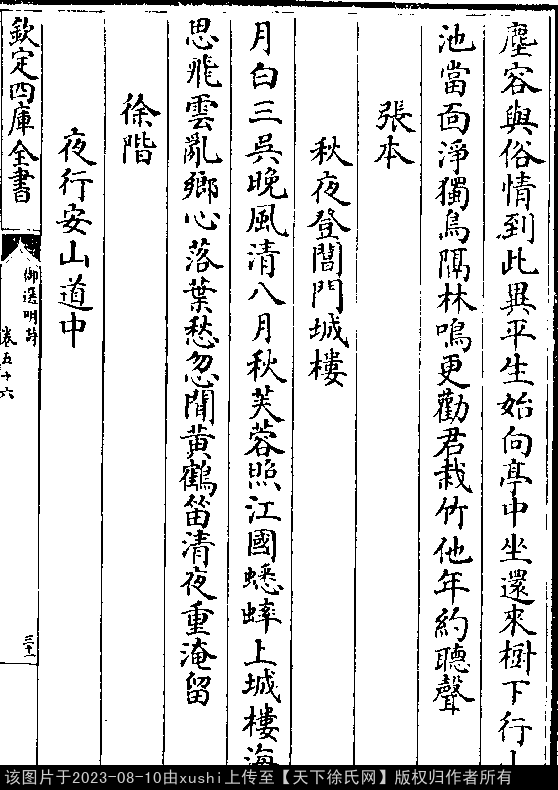 塵容與俗情到此異平生始向亭中坐還來樹下行
池當面淨獨鳥隔林鳴更勸君栽竹他年約聽聲
張本
秋夜登閶門城樓
月白三吳晚風清八月秋芙蓉照江國蟋蟀上城樓海
思飛雲亂鄉心落葉愁忽聞黃鶴笛清夜重淹留
徐階
夜行安山道中
欽定四庫全書
御選明詩
卷五十六
三十一
该图片于2023-08-10由xushi上传至【天下徐氏网】版权归作者所有